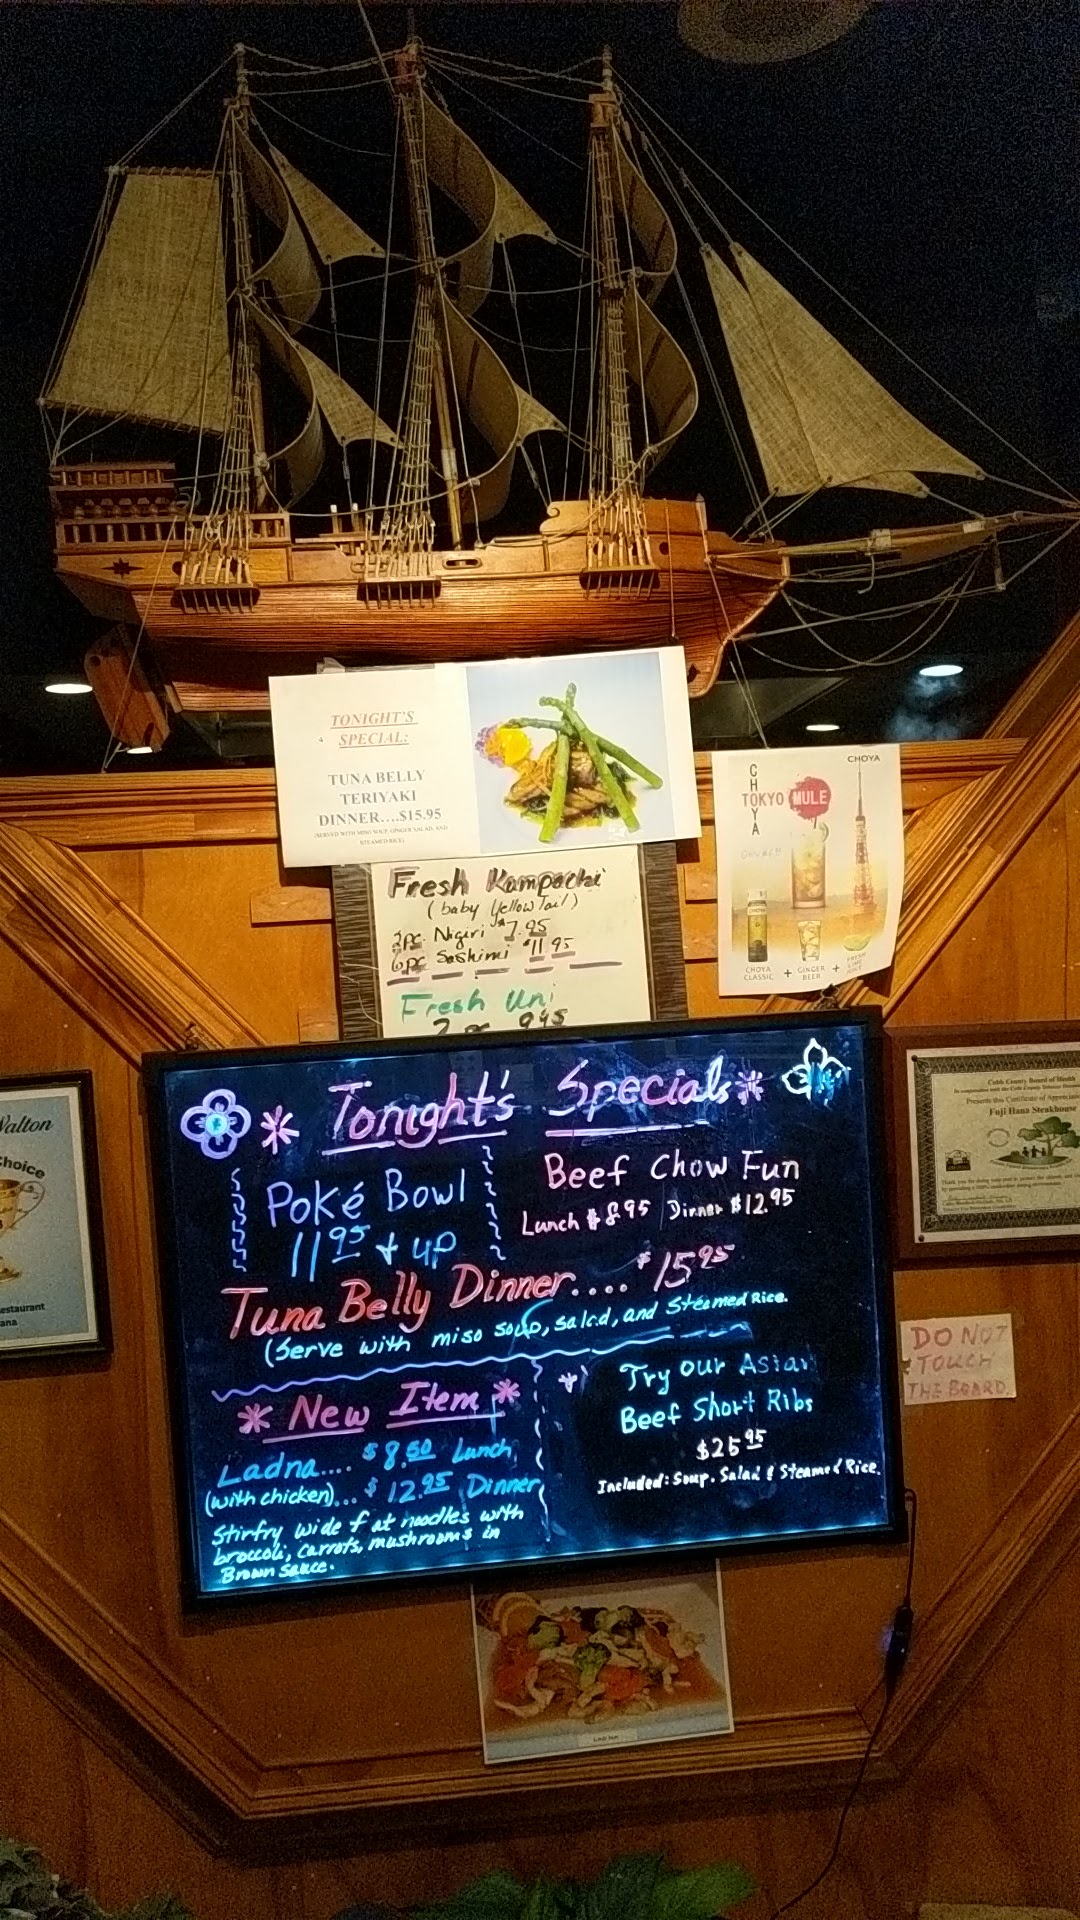 TONIGHT'S
SPECIAL:
TUNA BELLY
TERIYAKI
DINNER....$15.95
(SERVED WITH MISO SOUP, GINGER SALAD, AND
STEAMED RICE)
CHOYA
CHOYA
TOKYO MULE
CHOYA
CLASSIC
+
GINGER
BEER
+
FRESH
LIME
JUICE
Fresh Kampachi
(baby Yellow Tail)
2pc. Nigiri $7.95
6pc Sashimi $11.95
Fresh Uni
2 pc 9.95
Tonight's Specials
Poké Bowl
11.95 & up
Beef Chow Fun
Lunch $8.95 / Dinner $12.95
Tuna Belly Dinner.... $15.95
(Serve with miso soup, salad, and Steamed Rice.
New Item
Ladna.... $8.50 Lunch
(with chicken)... $12.95 Dinner
Stirfry wide fat noodles with
broccoli, carrots, mushrooms in
Brown Sauce.
Try our Asian
Beef Short Ribs
$25.95
Included: Soup, Salad & Steamed Rice.
Walton
Choice
estaurant
ana
Cobb County Board of Health
Presents this Certificate of Apprecia
Fuji Hana Steakhouse
DO NOT
TOUCH
THE BOARD.